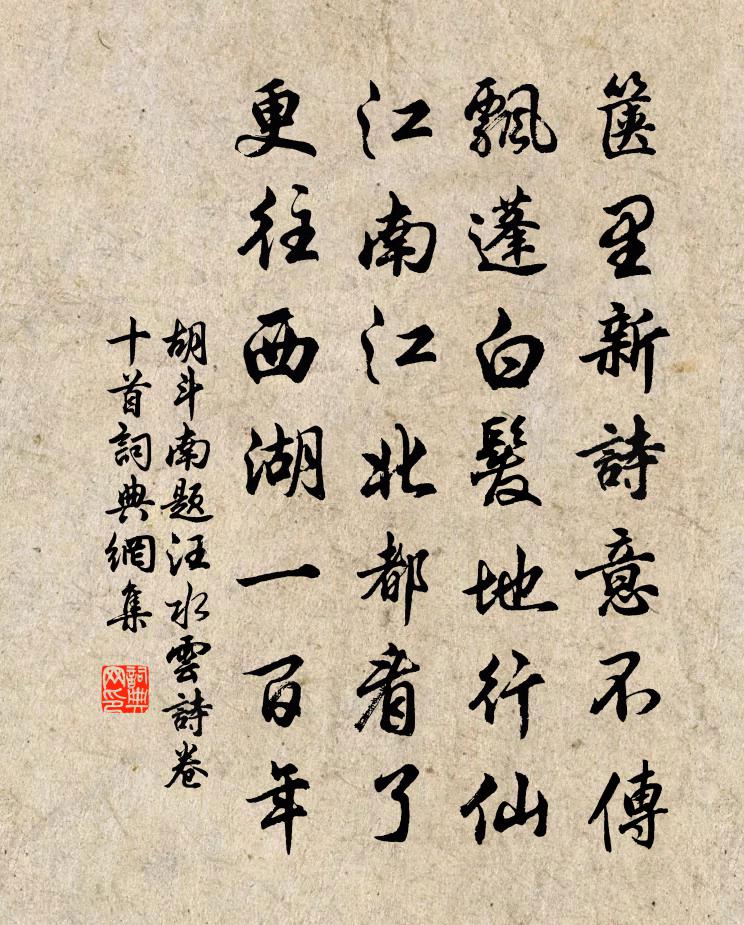 篋里新詩意不傳
飄蓬白髮地行仙
江南江北都看了
更往西湖一百年
胡斗南题汪水雲詩卷
十首詞典網集
詞典
网印